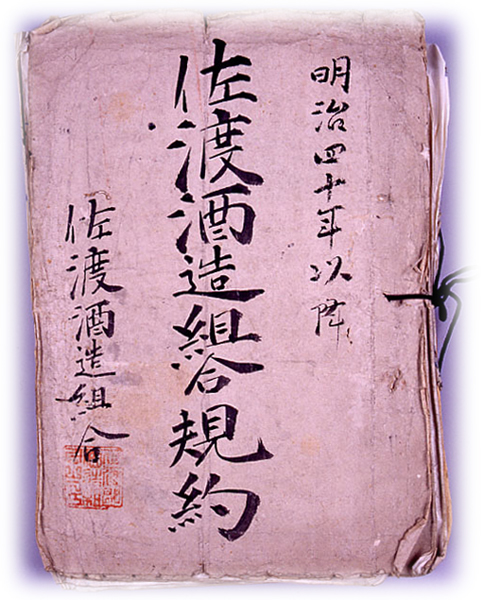 明治四十年以降
佐渡酒造組合規約
佐渡酒造組合